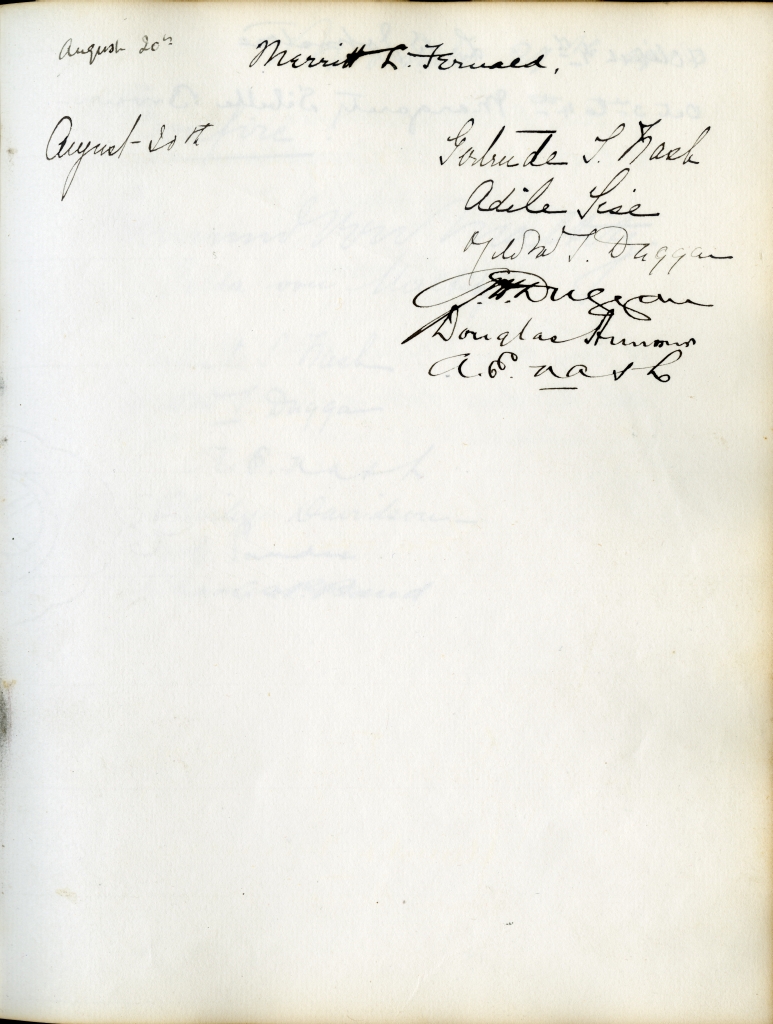 August 20th
Merritt L. Fernald.
August 20th
Gertrude S. Nash
Adile Sise
Mildred S. Duggan
G.H. Duggan
Douglas
A.E. Nash